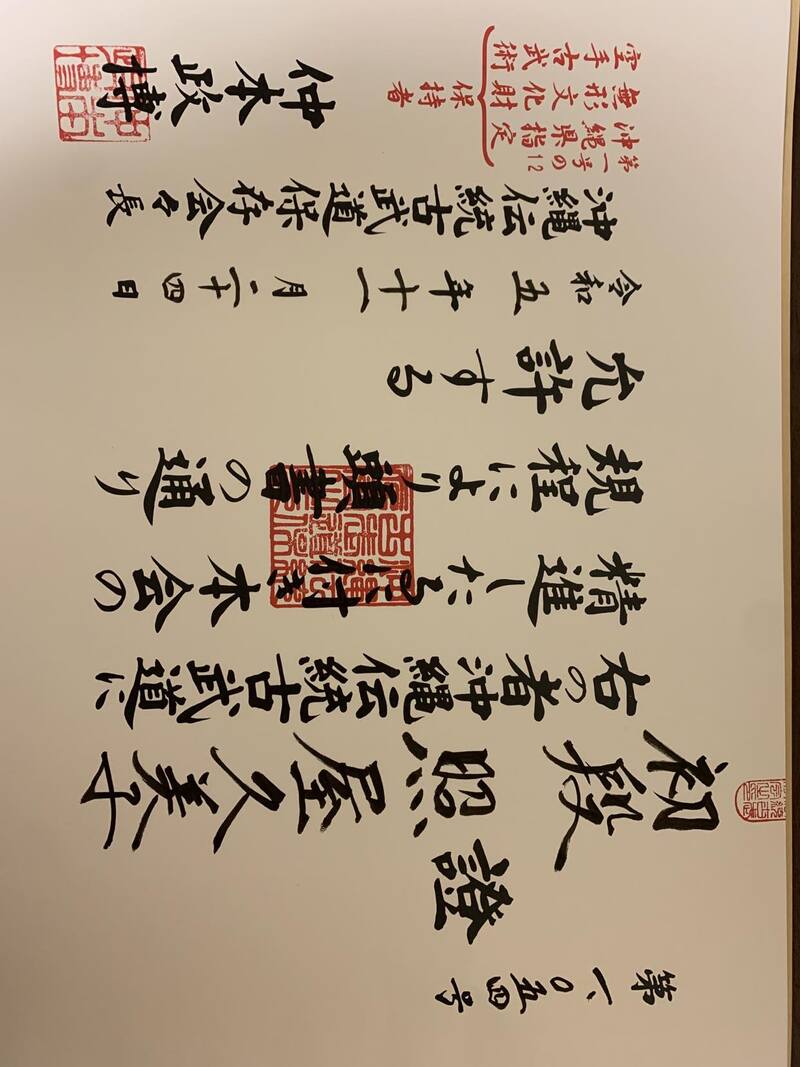 第一、０五四号
證
初段 照屋久美子
右の者沖縄伝統古武道に
精進したるに付き本会の
規程により頭書の通り
允許する
令和五年十一月二十四日
沖縄伝統古武道保存会々長
第一号の12
沖縄県指定
無形文化財
空手古武術
保持者
仲本政博
仲本政博